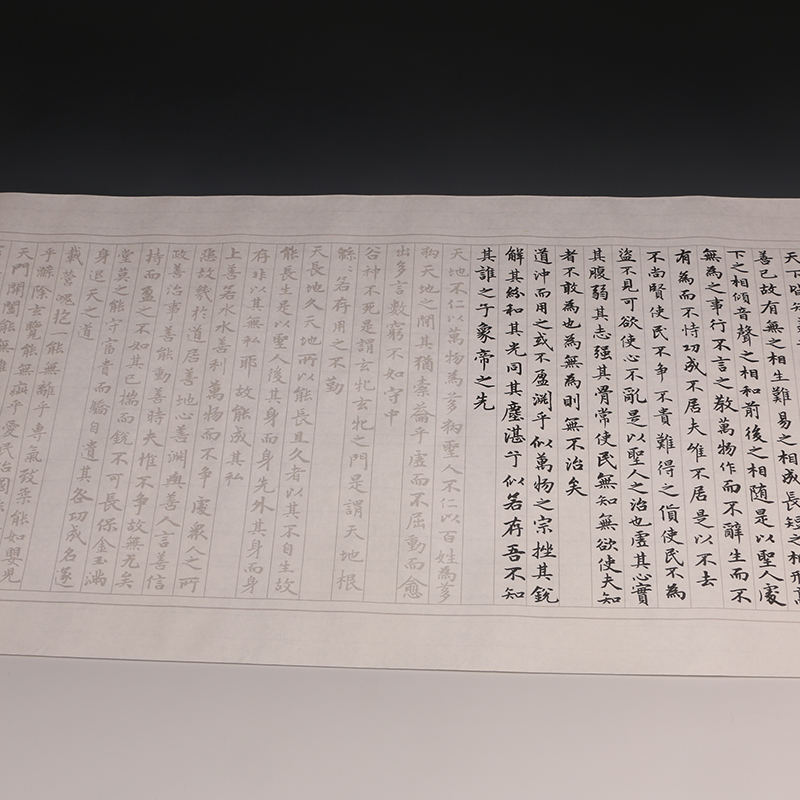 善已故有無之相生難易之相成長短之相形高
下之相傾音聲之相和前後之相随是以聖人處
無為之事行不言之教萬物作而不辭生而不
有為而不恃功成不居夫惟不居是以不去
不尚賢使民不爭不貴難得之貨使民不為
盜不見可欲使心不亂是以聖人之治也虛其心實
其腹弱其志强其骨常使民無知無欲使夫知
者不敢為也為無為則無不治矣
道沖而用之或不盈淵乎似萬物之宗挫其銳
解其紛和其光同其塵湛兮似若存吾不知
其誰之子象帝之先
天地不仁以萬物為芻狗聖人不仁以百姓為芻
狗天地之間其猶橐籥乎虛而不屈動而愈
出多言數窮不如守中
谷神不死是謂玄牝玄牝之門是謂天地根
綿綿若存用之不勤
天長地久天地所以能長且久者以其不自生故
能長生是以聖人後其身而身先外其身而身
存非以其無私耶故能成其私
上善若水水善利萬物而不爭處衆人之所
惡故幾於道居善地心善淵與善人言善信
政善治事善能動善時夫惟不爭故無尤矣
持而盈之不如其已揣而銳不可長保金玉滿
堂莫之能守富貴而驕自遺其咎功成名遂
身退天之道
載營魄抱一能無離乎專氣致柔能如嬰兒
乎滌除玄覽能無疵乎愛民治國
天門開闔能無雌